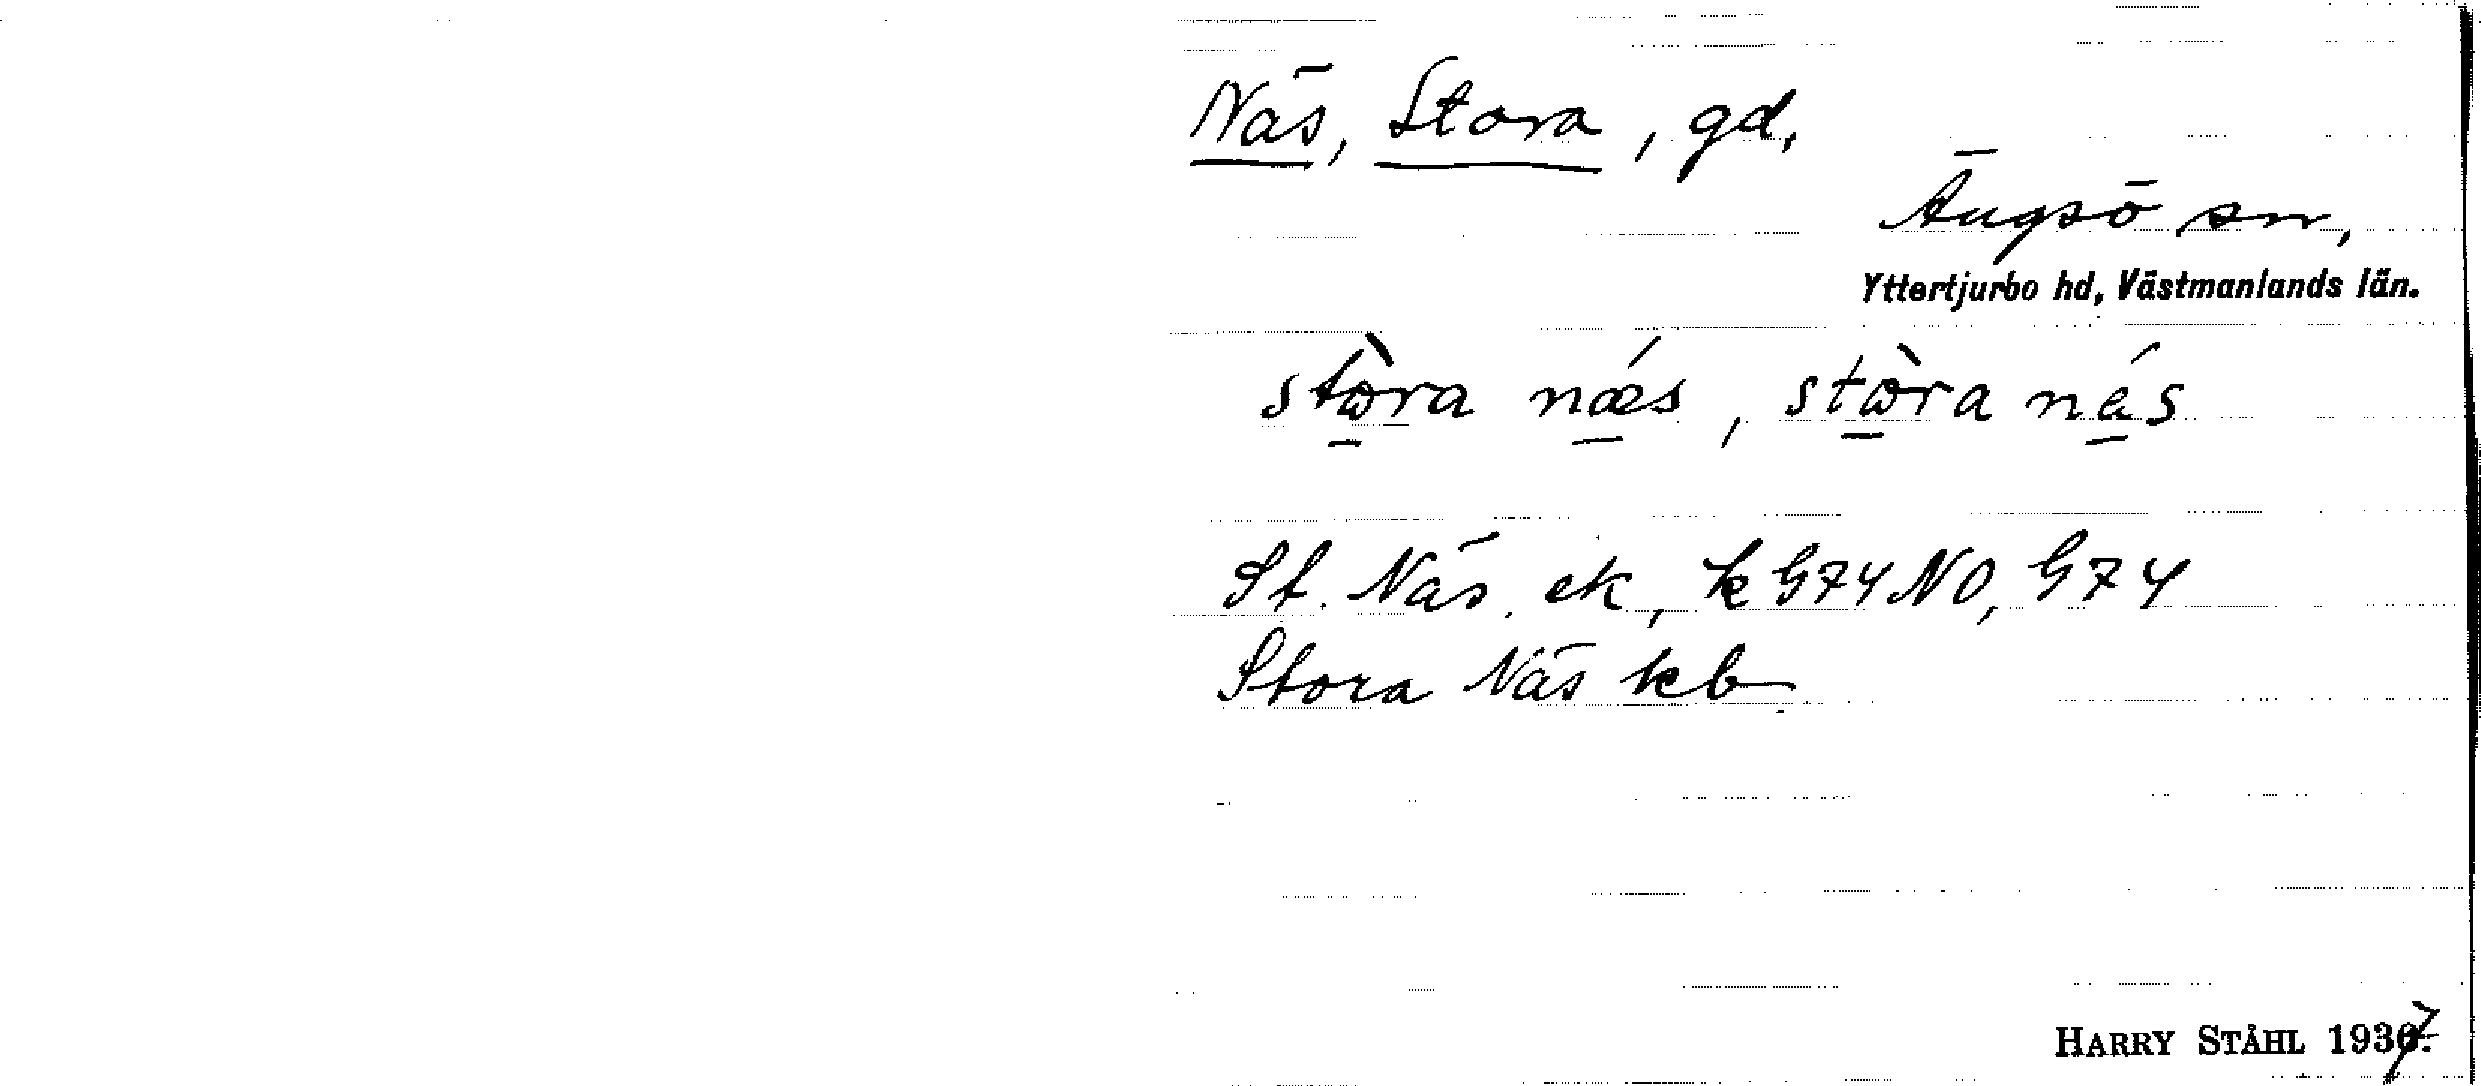 Näs, Stora, gd,
Ängsö sn,
Yttertjurbo hd, Västmanlands län.
stὼ̱ra nǽ̱s, stὼ̱ra né̱s
St. Näs ek, k G74 NO, G74
Stora Näs kb
HARRY STÅHL 1937